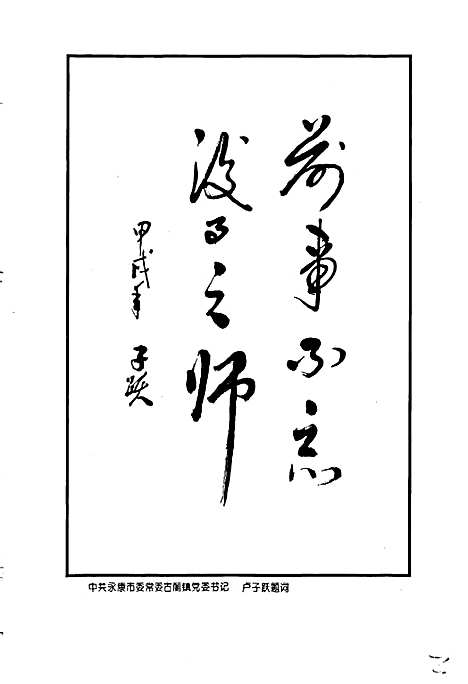 前事不忘
後事之师
甲戌年 子跃
中共永康市委常委古丽镇党委书记 卢子跃题词